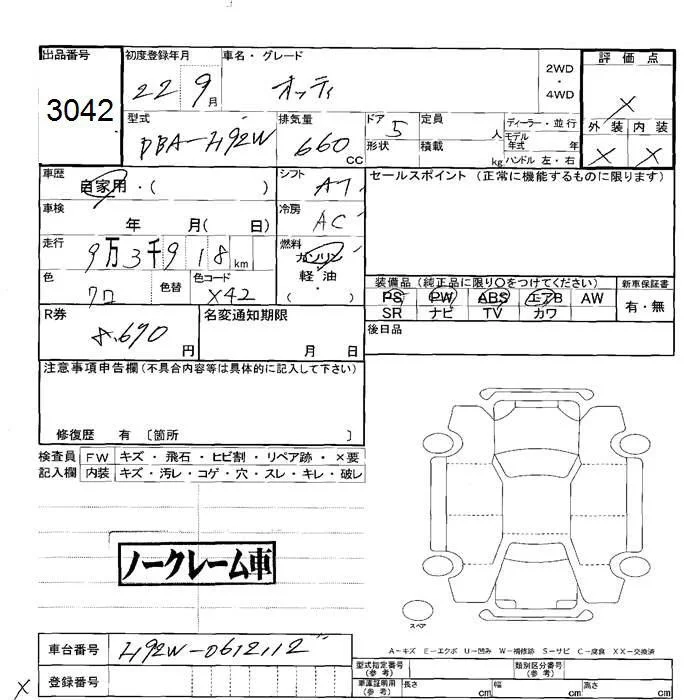 出品番号 初度登録年月 車名・グレード 2WD・4WD 評価点
3042 22 9月 オッティ X
型式 排気量 ドア 定員 人 ディーラー・並行 外装 内装
DBA-H92W 660cc 5 形状 積載 kg モデル年式 年 ハンドル 左・右 X X
車歴 自家用・( ) シフト AT セールスポイント (正常に機能するものに限ります)
車検 年 月( 日) 冷房 AC
走行 9万3千918km 燃料 ガソリン 軽・油 ( )
色 クロ 色替 色コード X42 装備品 (純正品に限り○をつけてください) 新車保証書
PS PW ABS エアB AW 有・無
SR ナビ TV カワ
R券 8,690円 名変通知期限 月 日 後日品
注意事項申告欄(不具合内容等は具体的に記入して下さい)
修復歴 有 〔箇所 〕
検査員 FW キズ・飛石・ヒビ割・リペア跡・×要
記入欄 内装 キズ・汚レ・コゲ・穴・スレ・キレ・破レ
ノークレーム車
スペア
A〜キズ E〜エクボ U〜凹み W〜補修跡 S〜サビ C〜腐食 XX〜交換済
車台番号 H92W-0612112
型式指定番号(参考) 類別区分番号(参考)
X 登録番号 車庫証明用(参考) 長さ cm 幅 cm 高さ cm